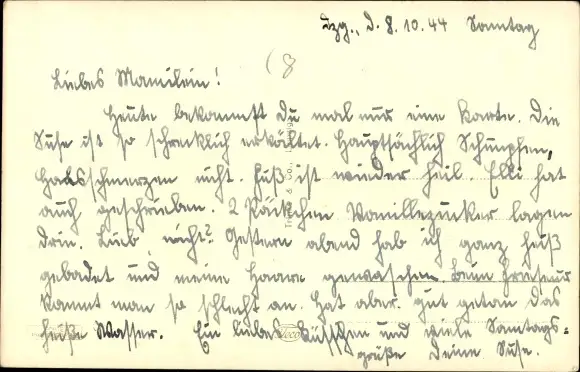 Lzg., d. 8.10.44 Sonntag
(8
Liebes Mamilein!
Heute bekommst du mal nur eine Karte. Die
Suse ist so schrecklich erkältet. Hauptsächlich Schnupfen,
Halsschmerzen nicht. Fuß ist wieder heil. Elli hat
auch geschrieben. 2 Päckchen Vanillezucker lagen
drin. Lieb, nicht? Gestern abend hab ich ganz heiß
gebadet und meine Haare gewaschen. Beim Friseur
kommt man so schlecht an. Hat aber gut getan das
heiße Wasser. Ein liebes Küsschen und viele Sonntags=
grüße Deine Suse.